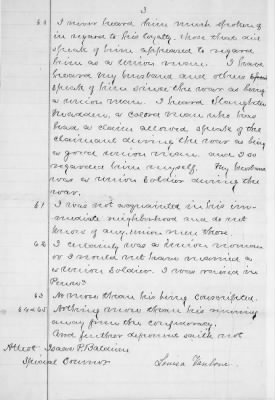 3
60 I never heard him much spoken
in regard to his loyalty. those that did
speak of him appeared to regard
him as a Union man. I have
heard my husband and others
speak of him since the war as being
a Union man. I heard
a Colord man who has
had a claim allowed speak of the
claimant during the war as being
a good Union man and I so
regarded him myself. My husband
was a Union Soldier during the
war.
61 I was not acquainted in his im-
mediate neighborhood and do not
know of any union men there.
62 I certainly was a Union woman
or I would not have married a
a Union Soldier. I was raised in
Penna
63 No more than his being conscripted.
64 & 65 Nothing more than his running
away from the confederacy.
And further deponent saith not
Attest Isaac P. Baldwin
Special Comnr
Louisa